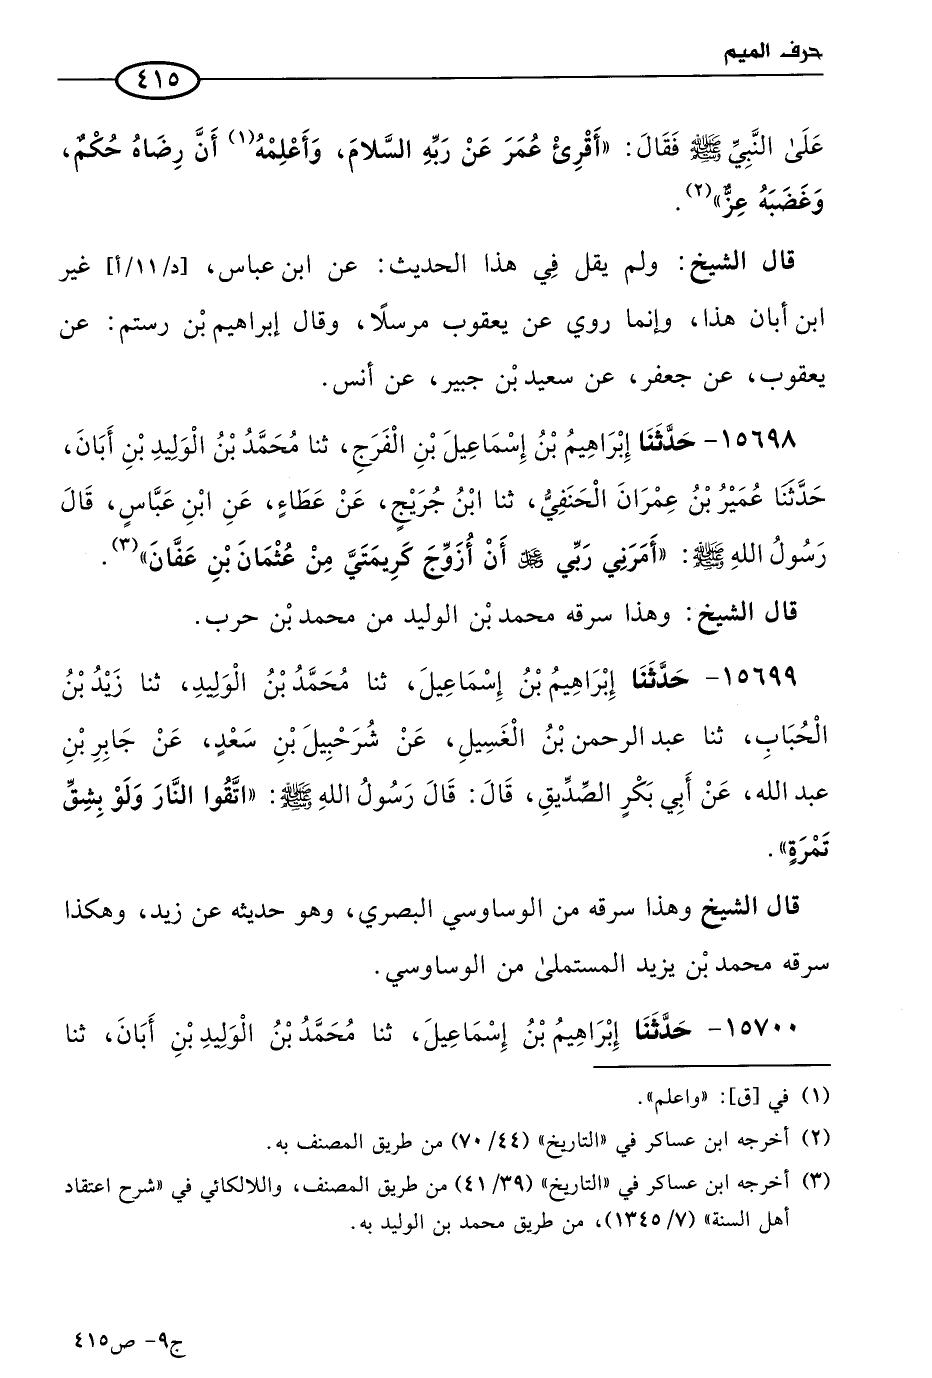 حرف الميم
٤١٥
عَلَىٰ النَّبِيِّ ﷺ فَقَالَ: «أَقْرِئْ عُمَرَ عَنْ رَبِّهِ السَّلامَ، وَأَعْلِمْهُ(١) أَنَّ رِضَاهُ حُكْمٌ،
وَغَضَبَهُ عِزٌّ»(٢).
قال الشيخ: ولم يقل فِي هذا الحديث: عن ابن عباس، [د/١١/أ] غير
ابن أبان هذا، وإنما روي عن يعقوب مرسلًا، وقال إبراهيم بْن رستم: عن
يعقوب، عن جعفر، عن سعيد بْن جبير، عن أنس.
١٥٦٩٨- حَدَّثَنَا إِبْرَاهِيمُ بْنُ إِسْمَاعِيلَ بْنِ الْفَرَجِ، ثنا مُحَمَّدُ بْنُ الْوَلِيدِ بْنِ أَبَانَ،
حَدَّثَنَا عُمَيْرُ بْنُ عِمْرَانَ الْحَنَفِيُّ، ثنا ابْنُ جُرَيْجٍ، عَنْ عَطَاءٍ، عَنِ ابْنِ عَبَّاسٍ، قَالَ
رَسُولُ اللهِ ﷺ: «أَمَرَنِي رَبِّي ﷻ أَنْ أُزَوِّجَ كَرِيمَتَيَّ مِنْ عُثْمَانَ بْنِ عَفَّانَ»(٣).
قال الشيخ: وهذا سرقه محمد بْن الوليد من محمد بْن حرب.
١٥٦٩٩- حَدَّثَنَا إِبْرَاهِيمُ بْنُ إِسْمَاعِيلَ، ثنا مُحَمَّدُ بْنُ الْوَلِيدِ، ثنا زَيْدُ بْنُ
الْحُبَابِ، ثنا عبد الرحمن بْنُ الْغَسِيلِ، عَنْ شُرَحْبِيلَ بْنِ سَعْدٍ، عَنْ جَابِرِ بْنِ
عبد الله، عَنْ أَبِي بَكْرٍ الصِّدِّيقِ، قَالَ: قَالَ رَسُولُ اللهِ ﷺ: «اتَّقُوا النَّارَ وَلَوْ بِشِقِّ
تَمْرَةٍ».
قال الشيخ وهذا سرقه من الوساوسي البصري، وهو حديثه عن زيد، وهكذا
سرقه محمد بْن يزيد المستملىٰ من الوساوسي.
١٥٧٠٠- حَدَّثَنَا إِبْرَاهِيمُ بْنُ إِسْمَاعِيلَ، ثنا مُحَمَّدُ بْنُ الْوَلِيدِ بْنِ أَبَانَ، ثنا
(١) في [ق]: «واعلم».
(٢) أخرجه ابن عساكر في «التاريخ» (٤٤/ ٧٠) من طريق المصنف به.
(٣) أخرجه ابن عساكر في «التاريخ» (٣٩/ ٤١) من طريق المصنف، واللالكائي في «شرح اعتقاد
أهل السنة» (٧/ ١٣٤٥)، من طريق محمد بن الوليد به.
ج٩- ص٤١٥